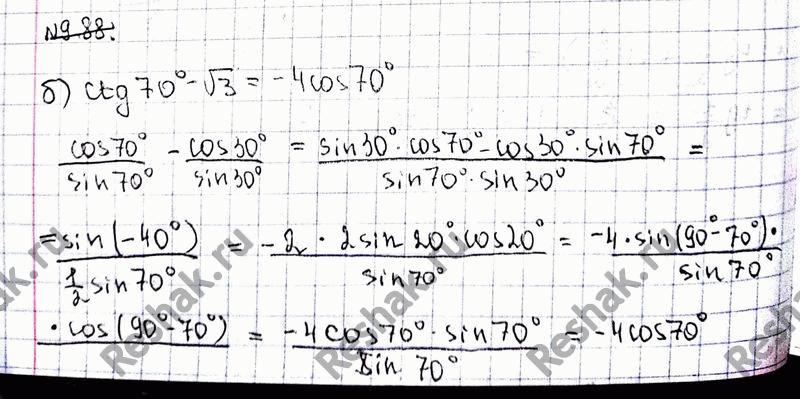 №9.88.
б) ctg 70° - √3 = -4cos70°
cos70°/sin70° - cos30°/sin30° = (sin30°·cos70° - cos30°·sin70°)/(sin70°·sin30°) =
= sin(-40°)/(1/2 sin70°) = (-2·2sin20°·cos20°)/sin70° = (-4·sin(90°-70°)·)/sin70°
(·cos(90°-70°)) = (-4cos70°·sin70°)/sin70° = -4cos70°
Reshak.ru
Reshak.ru
Reshak.ru
Reshak.ru
Reshak.ru
Reshak.ru